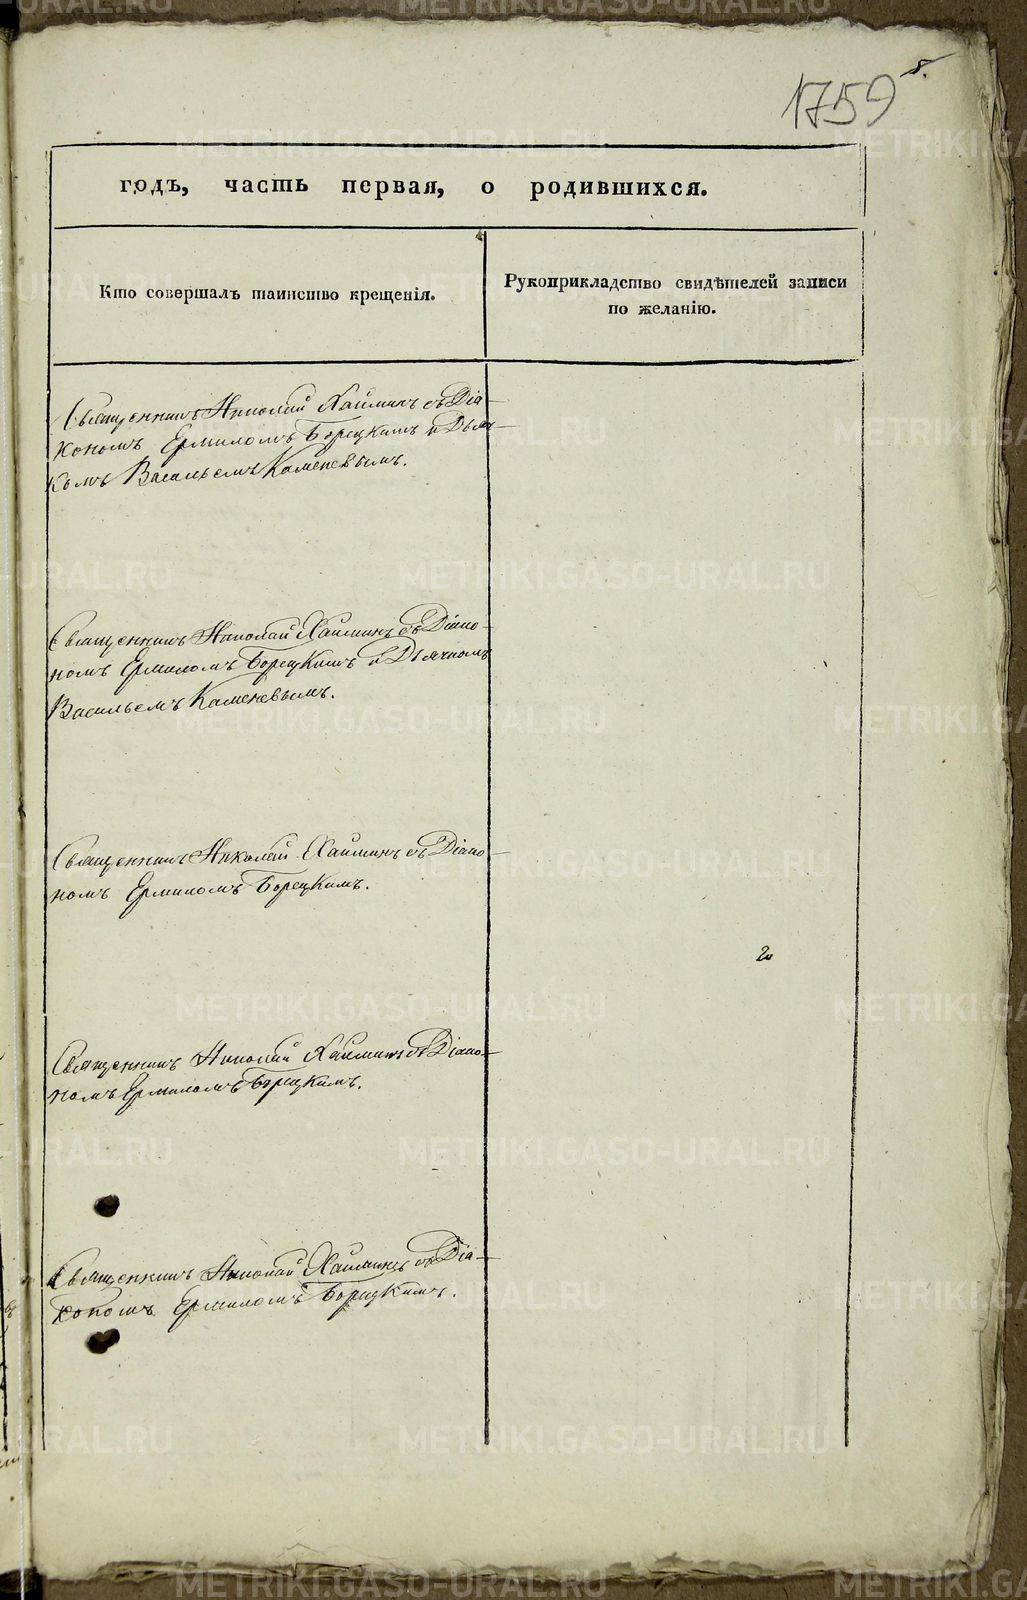 1759
8.
годъ, часть первая, о родившихся.
Кто совершалъ таинство крещенія.
Рукоприкладство свидѣтелей записи
по желанію.
Священникъ Николай Хаиминъ съ Діа-
кономъ Ермиломъ Борецкимъ и Дьяч-
комъ Васильемъ Каменевымъ.
Священникъ Николай Хаиминъ съ Діако-
номъ Ермиломъ Борецкимъ и Дьячкомъ
Васильемъ Каменевымъ.
Священникъ Николай Хаиминъ съ Діако-
номъ Ермиломъ Борецкимъ.
Священникъ Николай Хаиминъ съ Діако-
номъ Ермиломъ Борецкимъ.
Священникъ Николай Хаиминъ съ Діа-
кономъ Ермиломъ Борецкимъ.
METRIKI.GASO-URAL.RU